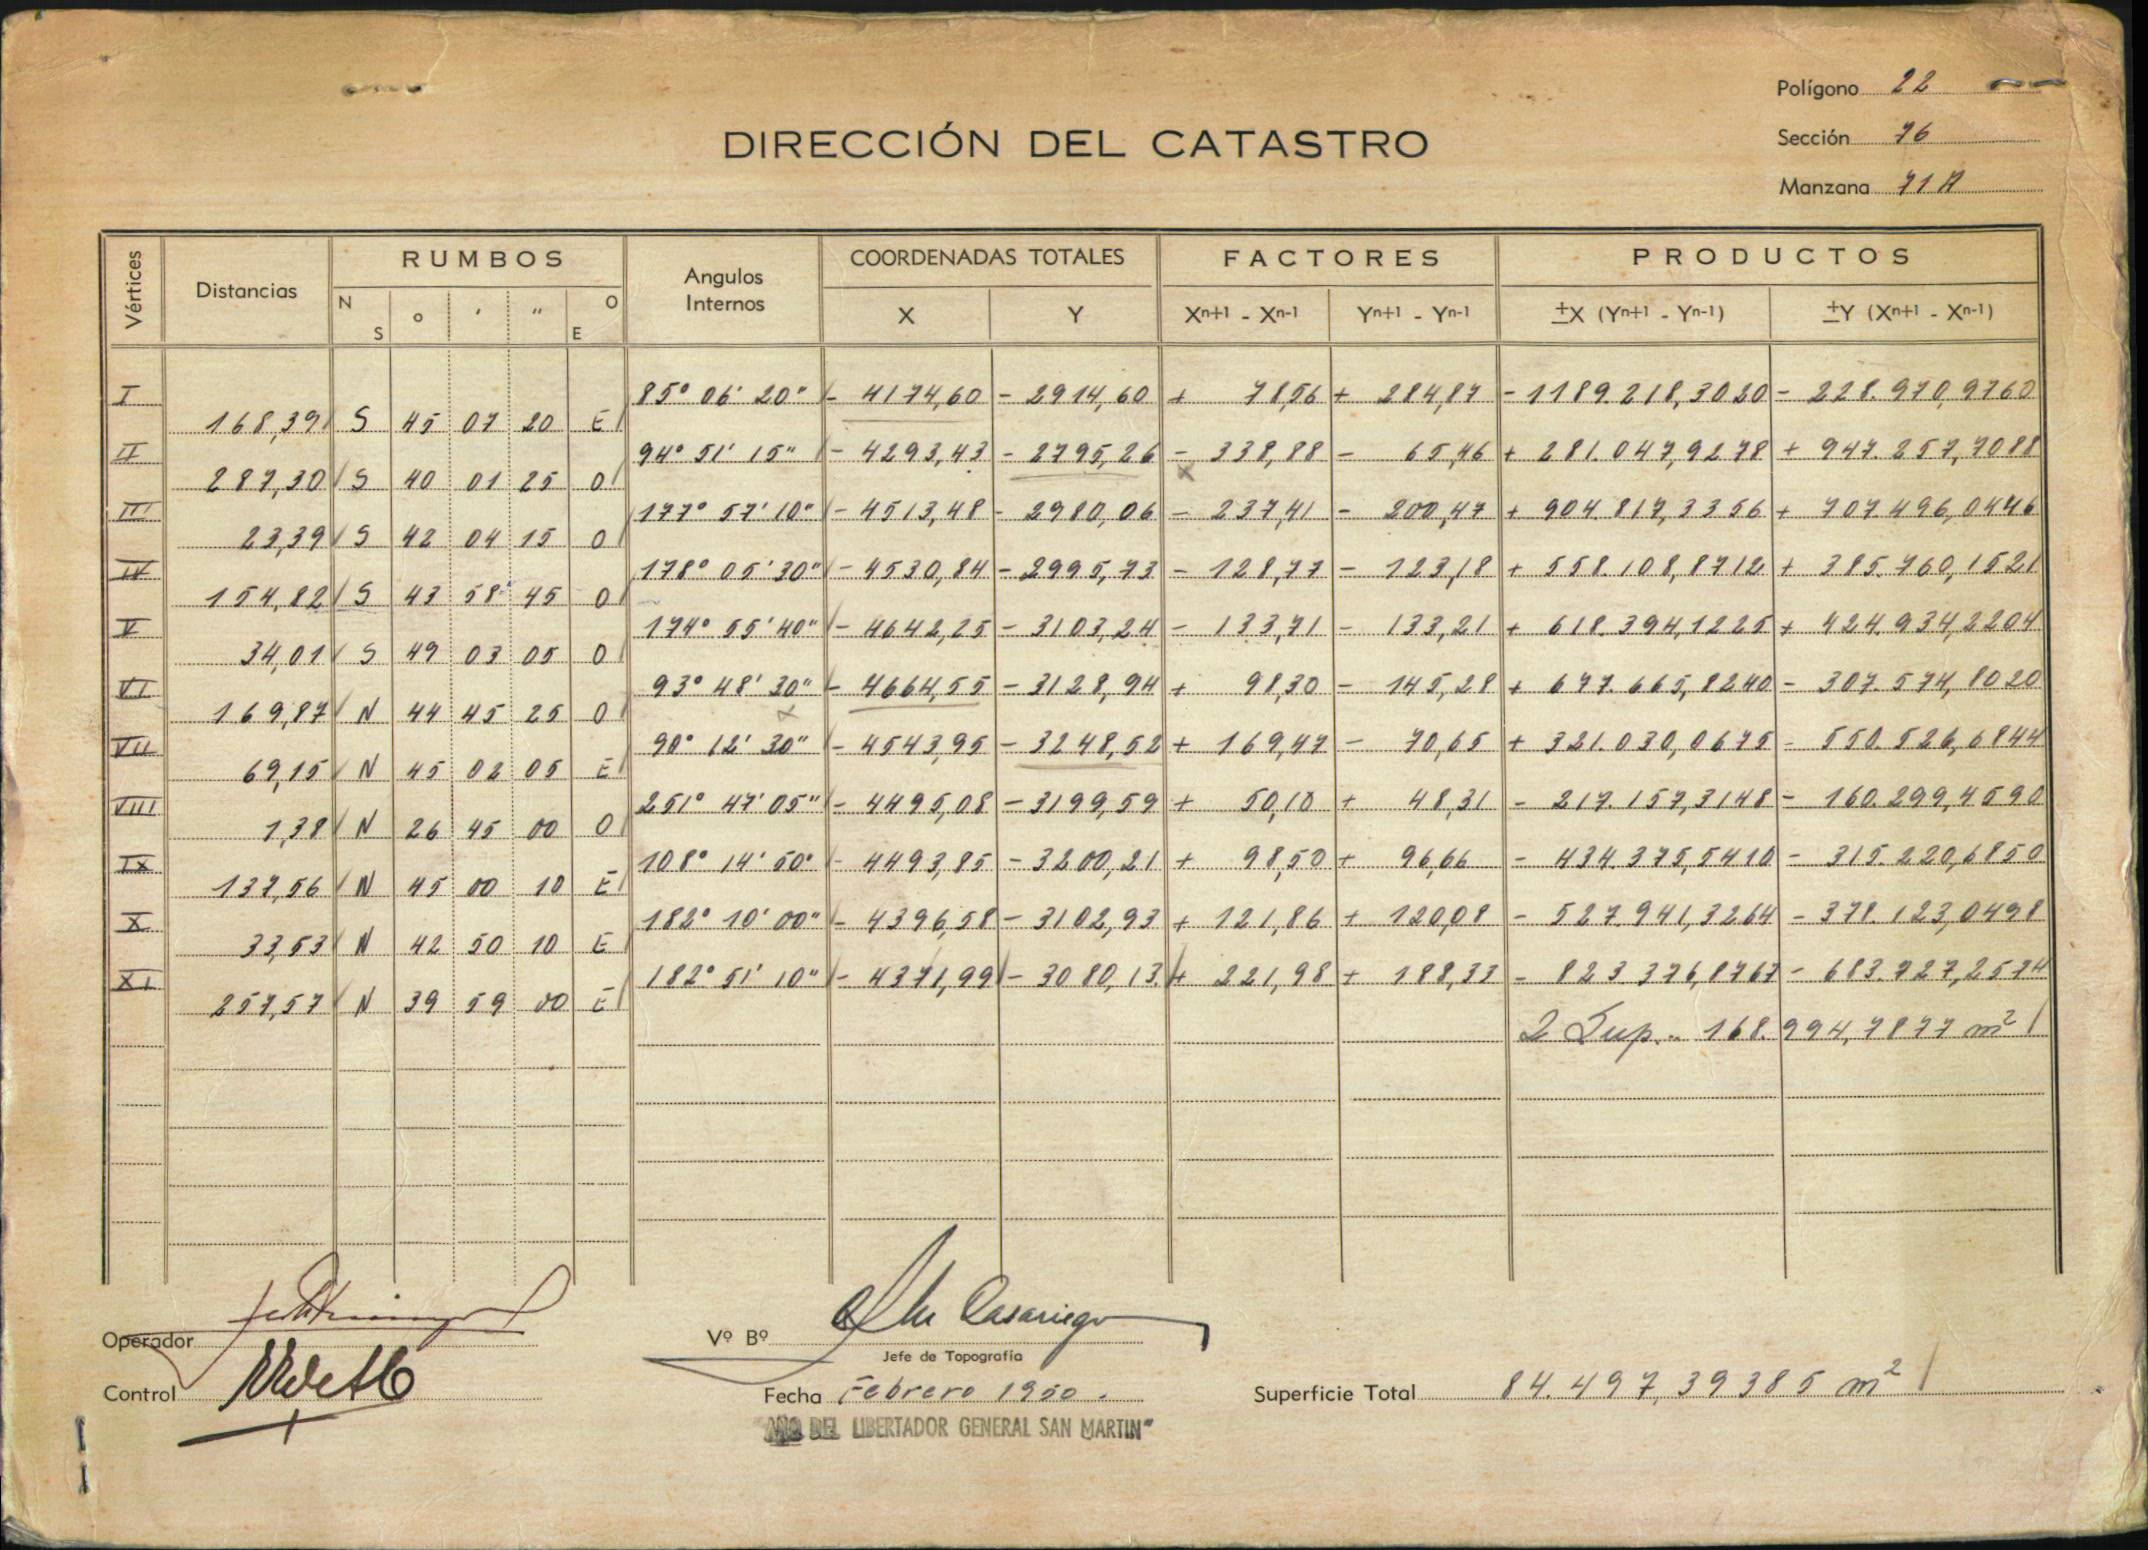 Polígono 22
Sección 76
Manzana 71 A
DIRECCIÓN DEL CATASTRO
Vértices Distancias RUMBOS Angulos Internos COORDENADAS TOTALES FACTORES PRODUCTOS
N S o ' " O E X Y Xn+1 - Xn-1 Yn+1 - Yn-1 ±X (Yn+1 - Yn-1) ±Y (Xn+1 - Xn-1)
I 85° 06' 20" - 4174,60 - 2914,60 + 78,56 + 284,87 - 1189.218,3020 - 228.970,9760
168,39 S 45 07 20 E
II 94° 51' 15" - 4293,43 - 2795,26 - 338,88 - 65,46 + 281.047,9278 + 947.257,7088
287,30 S 40 01 25 O
III 177° 57' 10" - 4513,48 - 2980,06 - 237,41 - 200,47 + 904.817,3356 + 707.496,0446
23,39 S 42 04 15 O
IV 178° 05' 30" - 4530,84 - 2995,73 - 128,77 - 123,18 + 558.108,8712 + 385.760,1521
154,82 S 43 58 45 O
V 174° 55' 40" - 4642,25 - 3103,24 - 133,71 - 133,21 + 618.394,1225 + 424.934,2204
34,01 S 49 03 05 O
VI 93° 48' 30" - 4664,55 - 3128,94 + 98,30 - 145,28 + 677.665,8240 - 307.574,8020
169,87 N 44 45 25 O
VII 90° 12' 30" - 4543,95 - 3248,52 + 169,47 - 70,65 + 321.030,0675 - 550.526,6844
69,15 N 45 02 05 E
VIII 251° 47' 05" - 4495,08 - 3199,59 + 50,10 + 48,31 - 217.157,3148 - 160.299,4590
1,38 N 26 45 00 O
IX 108° 14' 50" - 4493,85 - 3200,21 + 98,50 + 96,66 - 434.375,5410 - 315.220,6850
137,56 N 45 00 10 E
X 182° 10' 00" - 4396,58 - 3102,93 + 121,86 + 120,08 - 527.941,3264 - 378.123,0498
33,53 N 42 50 10 E
XI 182° 51' 10" - 4371,99 - 3080,13 + 221,98 + 188,33 - 823.376,8767 - 683.727,2574
257,57 N 39 59 00 E
2 Sup.. 168.994,7877 m²
Operador
Vº Bº Casariego
Jefe de Topografía
Control
Fecha Febrero 1950.
Superficie Total 84.497,39385 m²
AÑO DEL LIBERTADOR GENERAL SAN MARTIN"